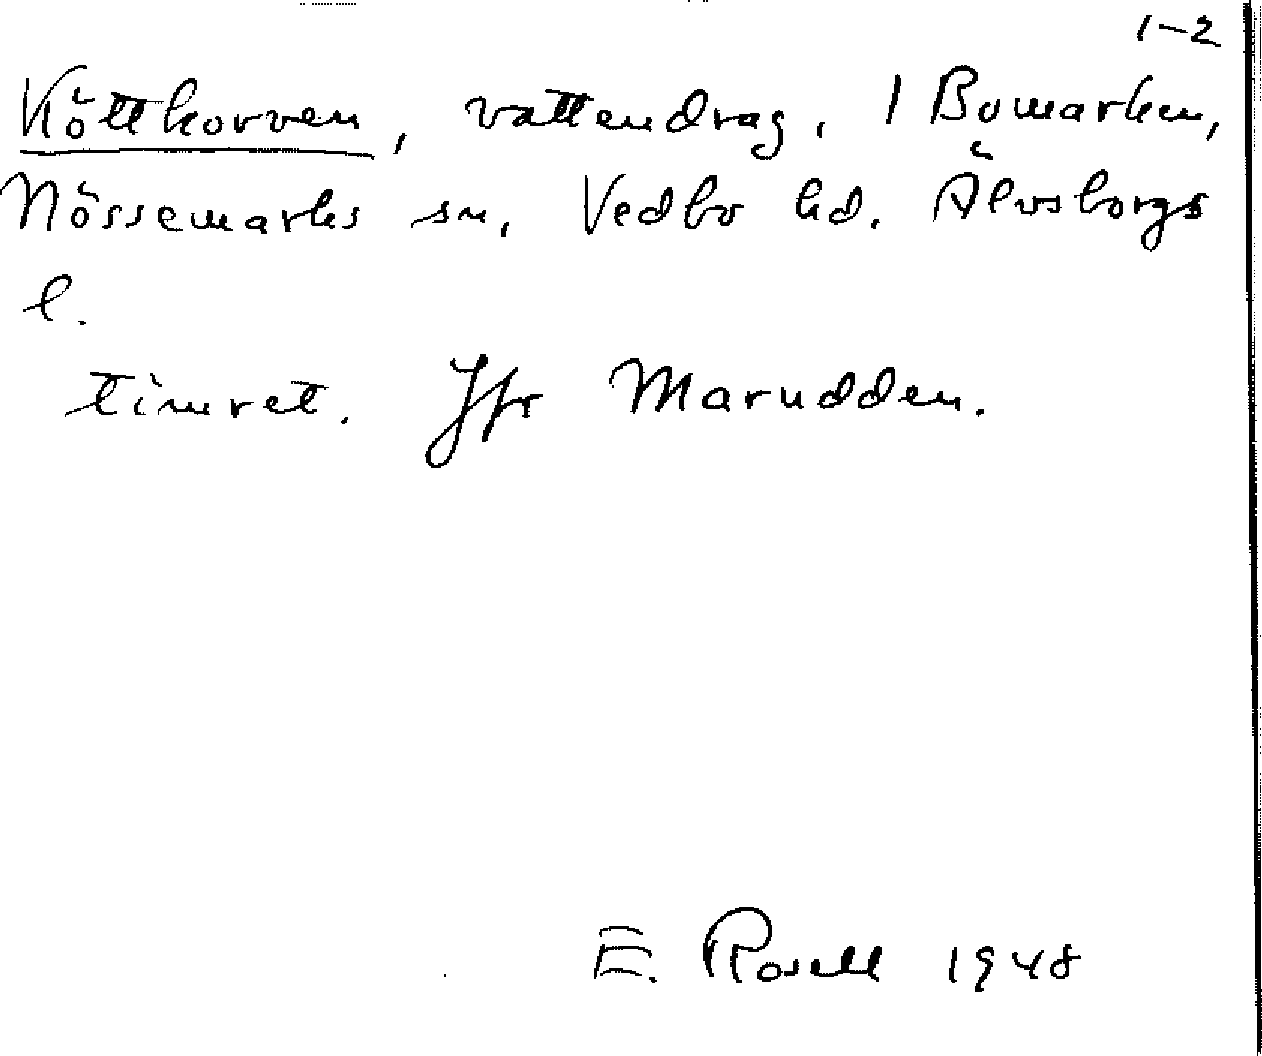 1-2
Köttkorven, vattendrag, 1 Bomarken,
Nössemarks sn, Vedbo hd. Älvsborgs
l.
timret. Jfr Marudden.
E. Rosell 1948